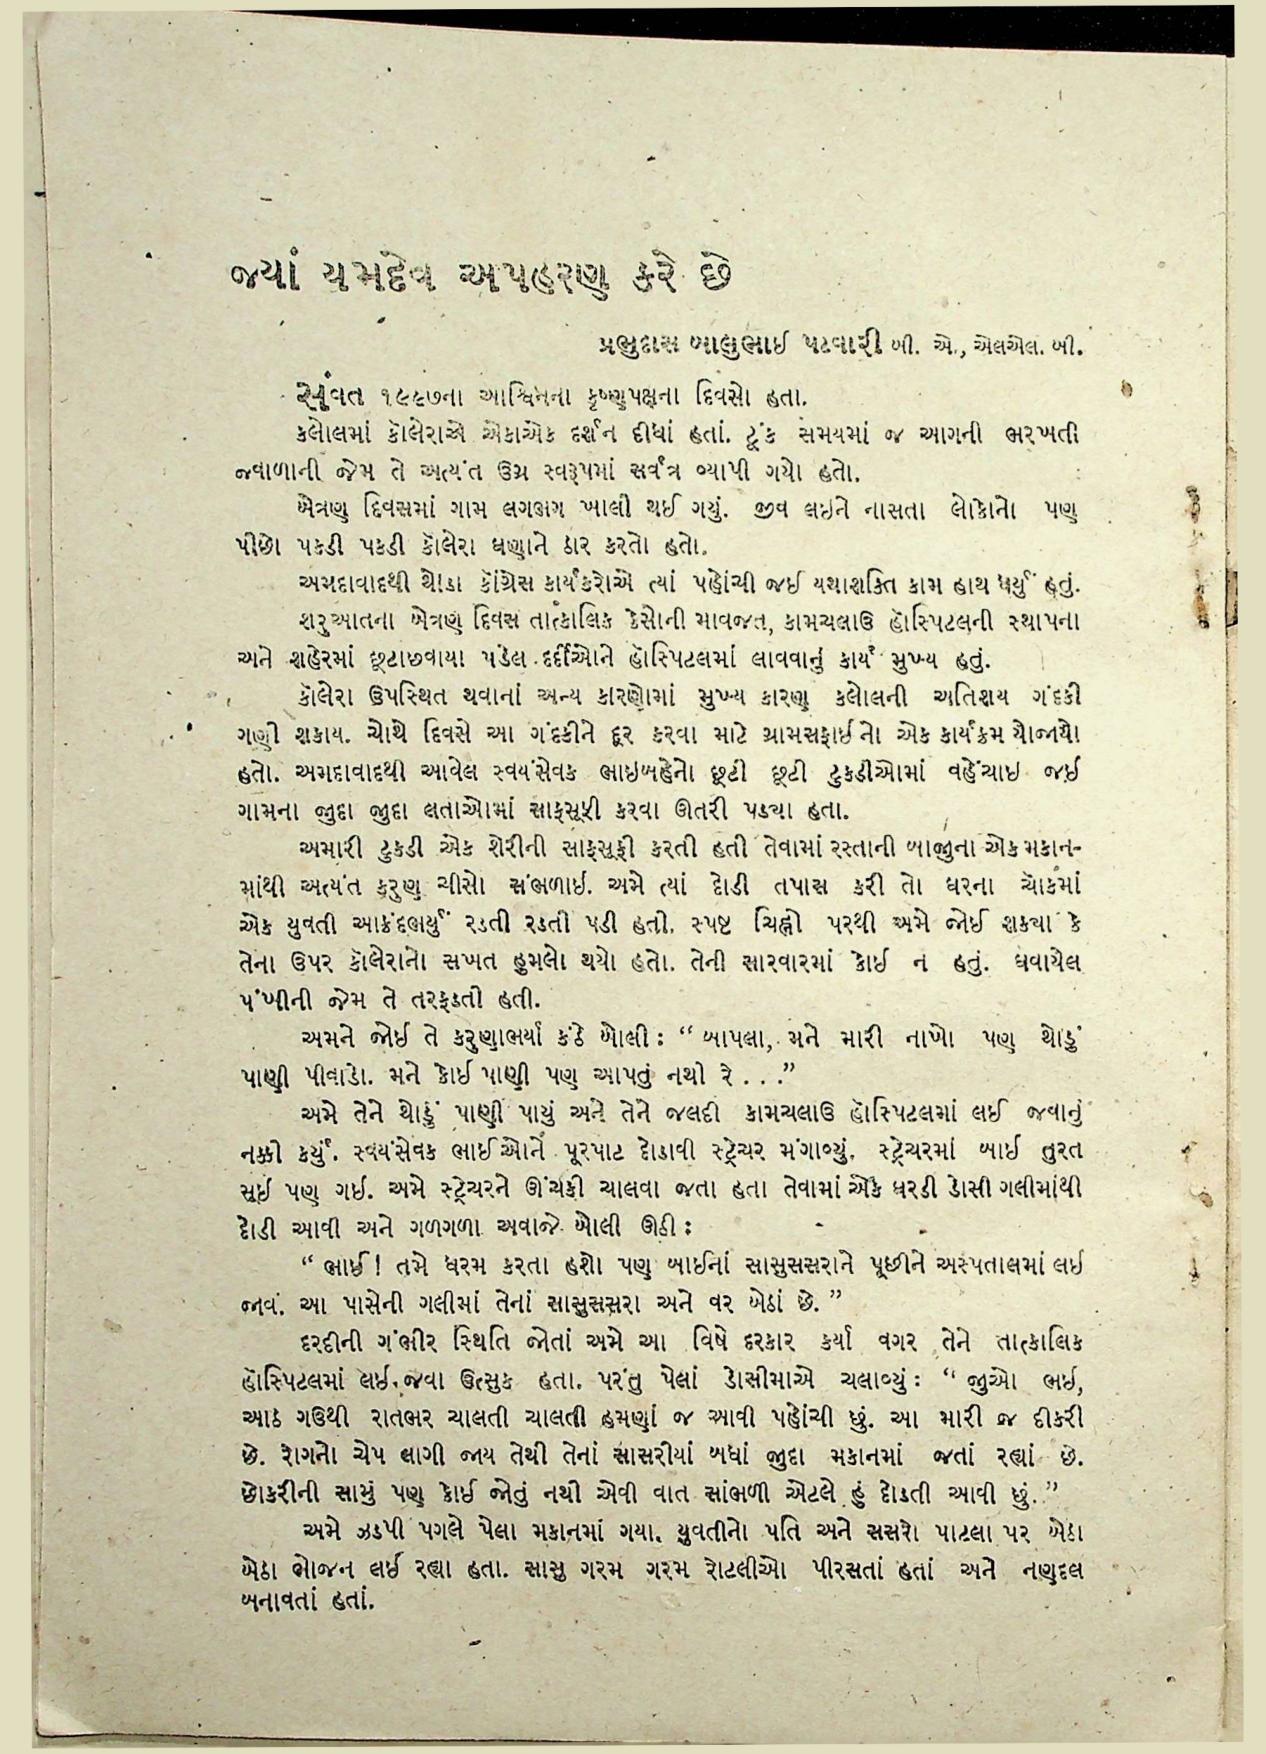 જ્યાં યમદેવ અપહરણ કરે છે
પ્રભુદાસ બાલુભાઈ પટવારી બી. એ., એલએલ. બી.
સંવત ૧૯૯૭ના આશ્વિનના કૃષ્ણપક્ષના દિવસો હતા.
કલોલમાં કૉલેરાએ એકાએક દર્શન દીધાં હતાં. ટૂંક સમયમાં જ આગની ભરખતી
જ્વાળાની જેમ તે અત્યંત ઉગ્ર સ્વરૂપમાં સર્વત્ર વ્યાપી ગયો હતો.
બેત્રણ દિવસમાં ગામ લગભગ ખાલી થઈ ગયું. જીવ લઇને નાસતા લોકોનો પણ
પીછો પકડી પકડી કૉલેરા ઘણાને ઠાર કરતો હતો.
અમદાવાદથી થોડા કૉંગ્રેસ કાર્યકરોએ ત્યાં પહોંચી જઈ યથાશક્તિ કામ હાથ ધર્યું હતું.
શરુઆતના બેત્રણ દિવસ તાત્કાલિક કેસોની માવજત, કામચલાઉ હૉસ્પિટલની સ્થાપના
અને શહેરમાં છૂટાછવાયા પડેલ દર્દીઓને હૉસ્પિટલમાં લાવવાનું કાર્ય મુખ્ય હતું.
કૉલેરા ઉપસ્થિત થવાનાં અન્ય કારણોમાં મુખ્ય કારણ કલોલની અતિશય ગંદકી
ગણી શકાય. ચોથે દિવસે આ ગંદકીને દૂર કરવા માટે ગ્રામસફાઈનો એક કાર્યક્રમ યોજાયો
હતો. અમદાવાદથી આવેલ સ્વયંસેવક ભાઇબહેનો છૂટી છૂટી ટુકડીઓમાં વહેંચાઇ જઈ
ગામના જુદા જુદા લતાઓમાં સાફસૂફી કરવા ઊતરી પડ્યા હતા.
અમારી ટુકડી એક શેરીની સાફસૂફી કરતી હતી તેવામાં રસ્તાની બાજુના એક મકાન-
માંથી અત્યંત કરુણ ચીસો સંભળાઈ. અમે ત્યાં દોડી તપાસ કરી તો ઘરના ચૉકમાં
એક યુવતી આક્રંદભર્યું રડતી રડતી પડી હતી. સ્પષ્ટ ચિહ્નો પરથી અમે જોઈ શક્યા કે
તેના ઉપર કૉલેરાનો સખત હુમલો થયો હતો. તેની સારવારમાં કોઈ ન હતું. ઘવાયેલ
પંખીની જેમ તે તરફડતી હતી.
અમને જોઈ તે કરુણાભર્યા કંઠે બોલી : “ બાપલા, મને મારી નાખો પણ થોડું
પાણી પીવાડો. મને કોઈ પાણી પણ આપતું નથી રે . . .”
અમે તેને થોડું પાણી પાયું અને તેને જલદી કામચલાઉ હૉસ્પિટલમાં લઈ જવાનું
નક્કી કર્યું. સ્વયંસેવક ભાઈઓને પૂરપાટ દોડાવી સ્ટ્રેચર મંગાવ્યું. સ્ટ્રેચરમાં બાઈ તુરત
સૂઇ પણ ગઈ. અમે સ્ટ્રેચરને ઊંચકી ચાલવા જતા હતા તેવામાં એક ઘરડી ડોસી ગલીમાંથી
દોડી આવી અને ગળગળા અવાજે બોલી ઊઠી :
“ ભાઈ ! તમે ધરમ કરતા હશો પણ બાઈનાં સાસુસસરાને પૂછીને અસ્પતાલમાં લઈ
જાવ. આ પાસેની ગલીમાં તેનાં સાસુસસરા અને વર બેઠાં છે. ”
દરદીની ગંભીર સ્થિતિ જોતાં અમે આ વિષે દરકાર કર્યા વગર તેને તાત્કાલિક
હૉસ્પિટલમાં લઈ જવા ઉત્સુક હતા. પરંતુ પેલાં ડોસીમાએ ચલાવ્યું : “ જુઓ ભઈ,
આઠ ગઉથી રાતભર ચાલતી ચાલતી હમણાં જ આવી પહોંચી છું. આ મારી જ દીકરી
છે. રોગનો ચેપ લાગી જાય તેથી તેનાં સાસરીયાં બધાં જુદા મકાનમાં જતાં રહ્યાં છે.
છોકરીની સામું પણ કોઈ જોતું નથી એવી વાત સાંભળી એટલે હું દોડતી આવી છું. ”
અમે ઝડપી પગલે પેલા મકાનમાં ગયા. યુવતીનો પતિ અને સસરો પાટલા પર બેઠા
બેઠા ભોજન લઈ રહ્યા હતા. સાસુ ગરમ ગરમ રોટલીઓ પીરસતાં હતાં અને નણદલ
બનાવતાં હતાં.